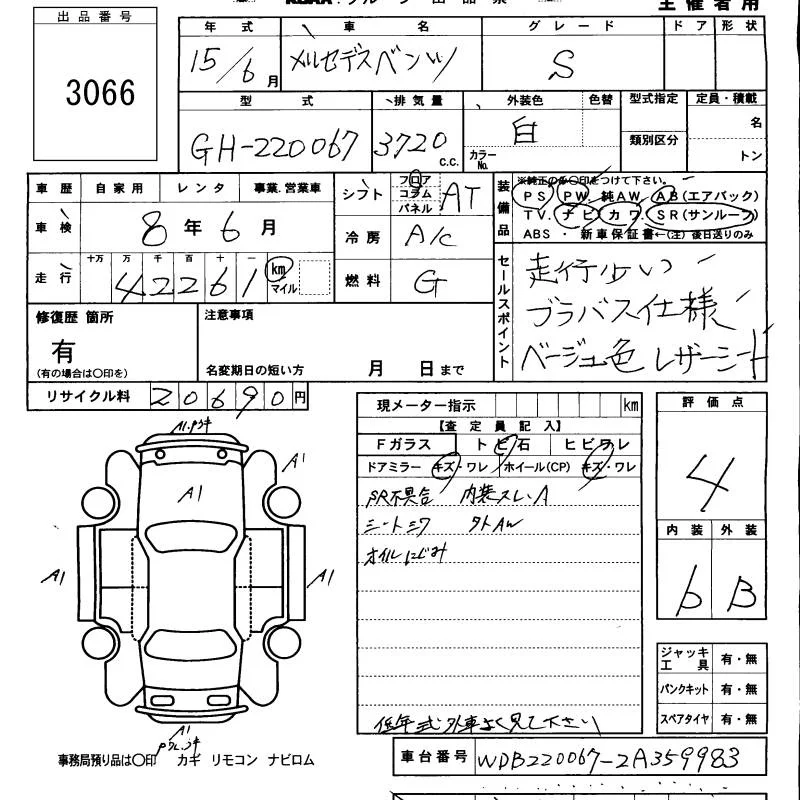 出品番号
3066
年式 車名 グレード ドア 形状
15/6月 メルセデスベンツ S
型式 排気量 外装色 色替 型式指定 定員・積載
GH-220067 3720 c.c. カラーNo. 白 類別区分 名 トン
車歴 自家用 レンタ 事業.営業車
車検 8年6月
走行 十万 万 千 百 十 一
42261 km マイル
シフト フロア コラム パネル AT
冷房 A/C
燃料 G
装備品
※純正のみ〇印をつけて下さい。
PS PW 純AW AB(エアバック)
TV. ナビ カワ. SR(サンルーフ)
ABS・ 新車保証書←(注)後日送りのみ
セールスポイント
走行少い
ブラバス仕様
ベージュ色 レザーシート
修復歴 箇所
有
(有の場合は〇印を)
注意事項
名変期日の短い方 月 日まで
リサイクル料 20690円
現メーター指示 km
【査定員記入】
Fガラス トビ石 ヒビワレ
ドアミラー キズ・ワレ ホイール(CP) キズ・ワレ
SR不具合 内装スレ.A
シートミワ 外AW
オイルにじみ
低年式外車よく見て下さい
評価点
4
内装 外装
b B
ジャッキ工具 有・無
パンクキット 有・無
スペアタイヤ 有・無
A1
A1
A1
A1
A1
事務局預り品は〇印 カギ リモコン ナビロム
車台番号 WDB220067-2A359983